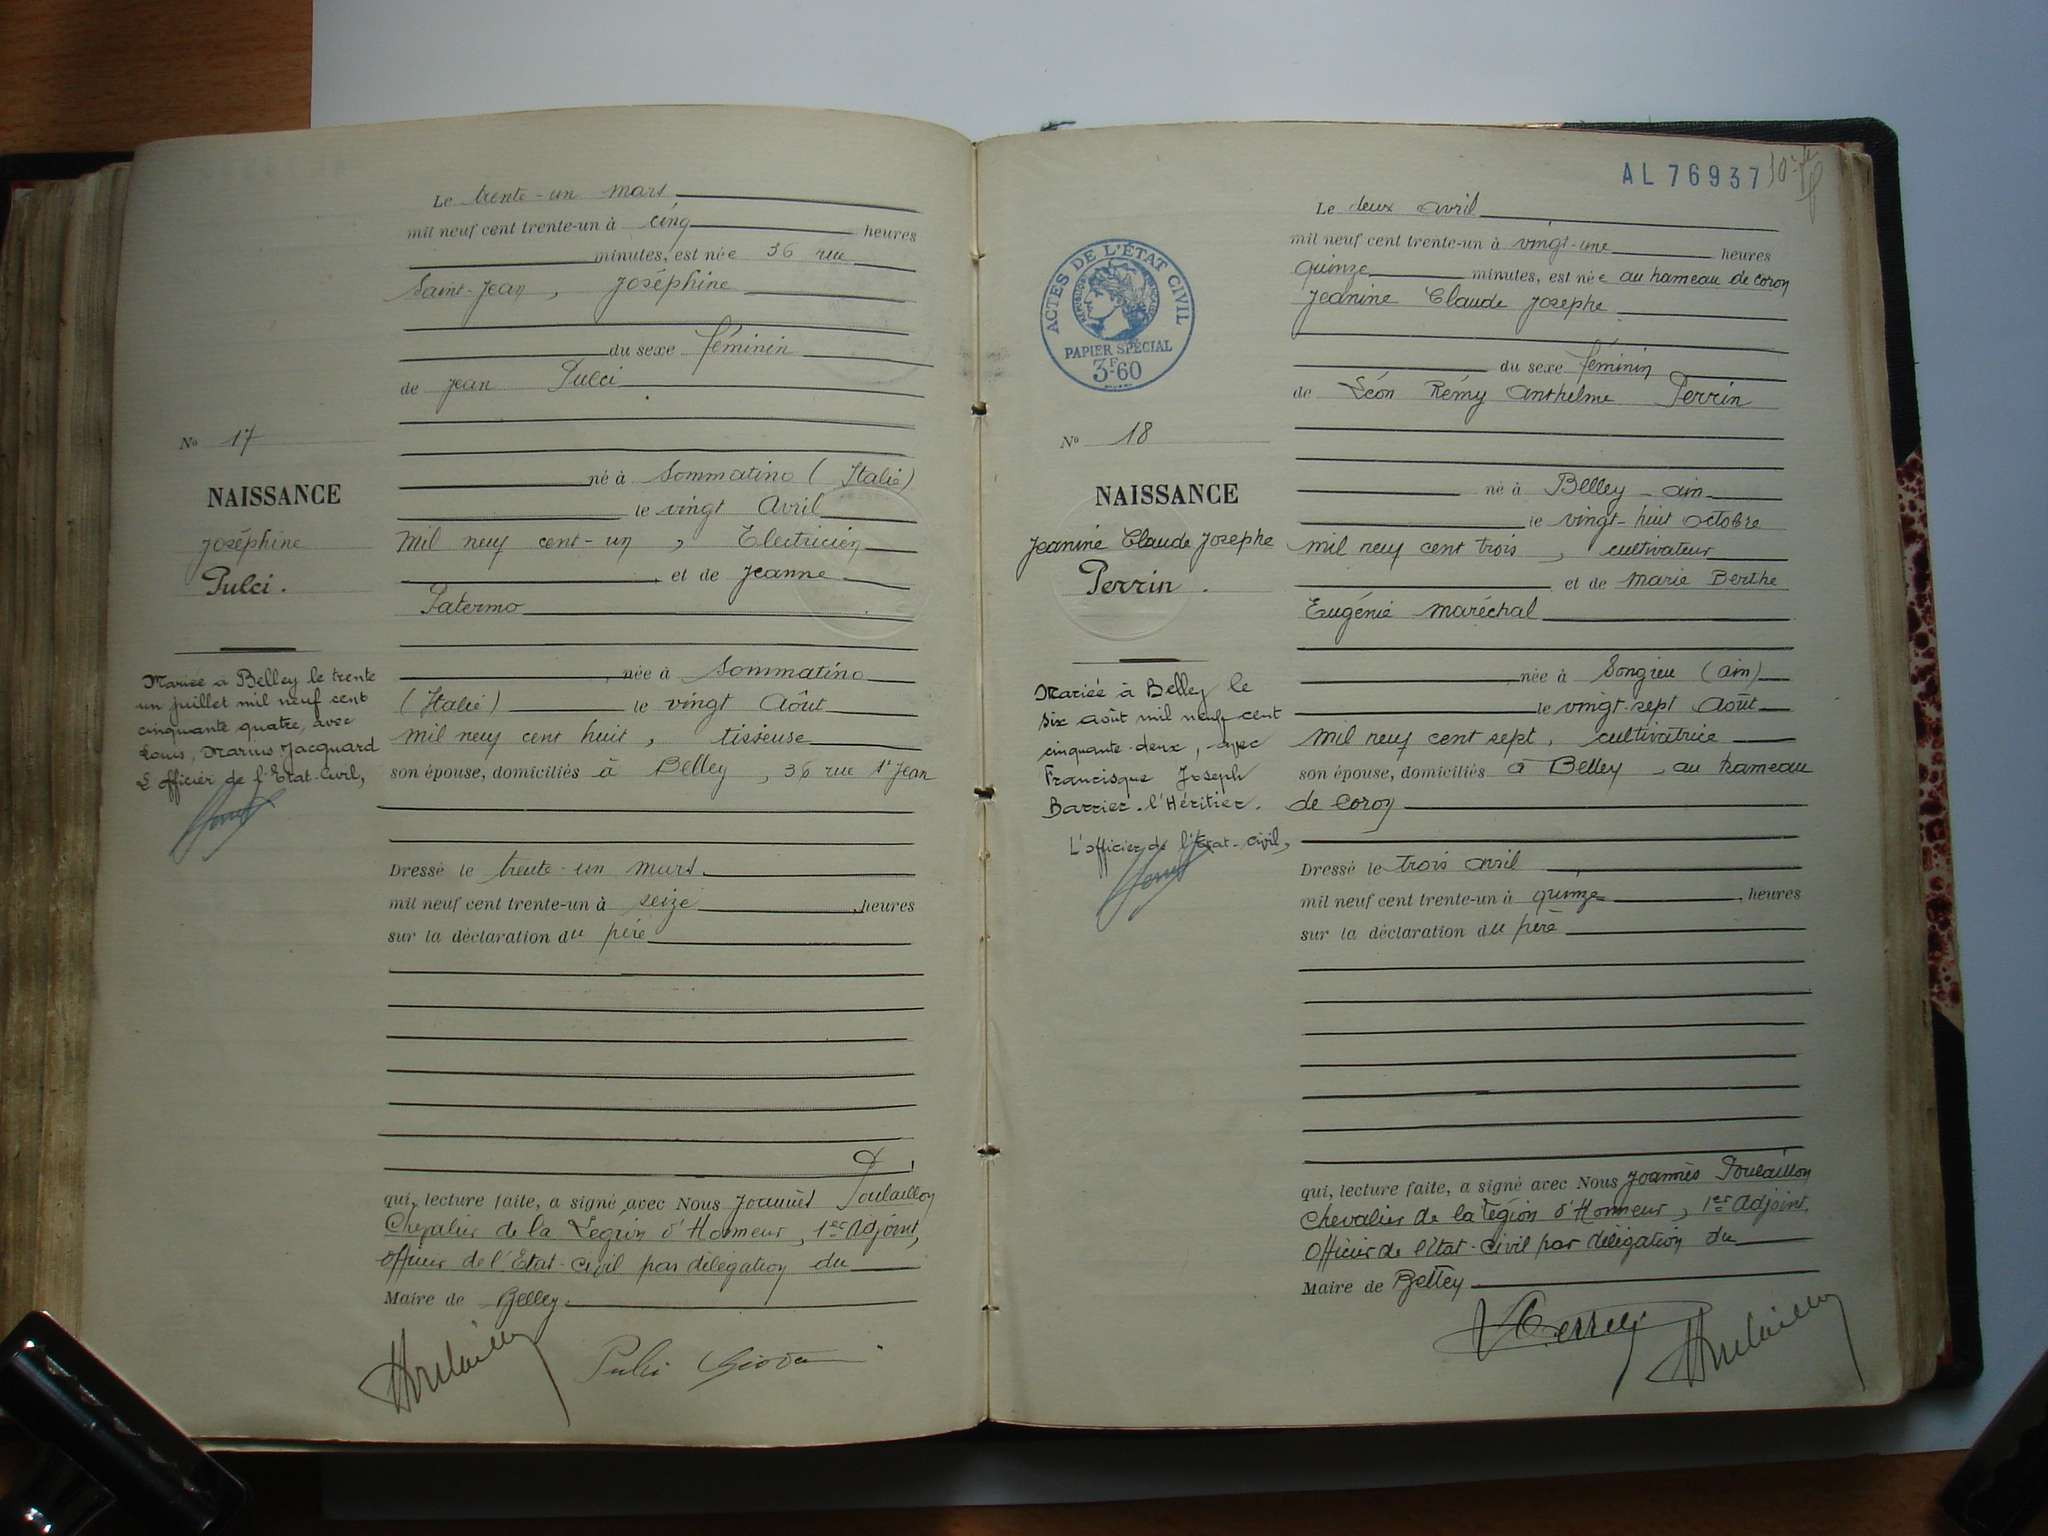 Le trente-un mars
mil neuf cent trente-un à cinq heures
minutes, est née 36 rue
Saint-Jean, Joséphine
du sexe féminin
de Jean Pulci
No 17
né à Sommatino (Italie)
NAISSANCE
le vingt Avril
Joséphine
mil neuf cent-un, Electricien
Pulci.
et de Jeanne
Palermo
née à Sommatino
Mariée à Belley le trente
un juillet mil neuf cent
cinquante quatre, avec
Louis, Marius Jacquard
L'officier de l'Etat-Civil,
(Italie) le vingt Août
mil neuf cent huit, tisseuse
son épouse, domiciliés à Belley, 36 rue St Jean
Dressé le trente-un mars
mil neuf cent trente-un à seize heures
sur la déclaration du père
qui, lecture faite, a signé avec Nous Joannès Poulaillon
Chevalier de la Légion d'Honneur, 1er Adjoint,
Officier de l'Etat-Civil par délégation du
Maire de Belley
Pulci Giova
AL 76937
ACTES DE L'ÉTAT CIVIL
RÉPUBLIQUE FRANÇAISE
PAPIER SPÉCIAL
3F.60
Le deux avril
mil neuf cent trente-un à vingt-une heures
quinze minutes, est née au hameau de Coron
Jeanine Claude Josephe
du sexe féminin
de Léon Rémy Anthelme Perrin
No 18
né à Belley - Ain
NAISSANCE
le vingt-huit octobre
Jeanine Claude Josephe
mil neuf cent trois, cultivateur
Perrin.
et de Marie Berthe
Eugénie Maréchal
née à Songieu (Ain)
Mariée à Belley le
six août mil neuf cent
cinquante-deux, avec
Francisque Joseph
Barrier-l'Héritier.
L'officier de l'Etat-Civil,
le vingt-sept Août
mil neuf cent sept, cultivatrice
son épouse, domiciliés à Belley, au hameau
de Coron
Dressé le trois avril
mil neuf cent trente-un à quinze heures
sur la déclaration du père
qui, lecture faite, a signé avec Nous Joannès Poulaillon
Chevalier de la Légion d'Honneur, 1er Adjoint,
Officier de l'Etat-Civil par délégation du
Maire de Belley